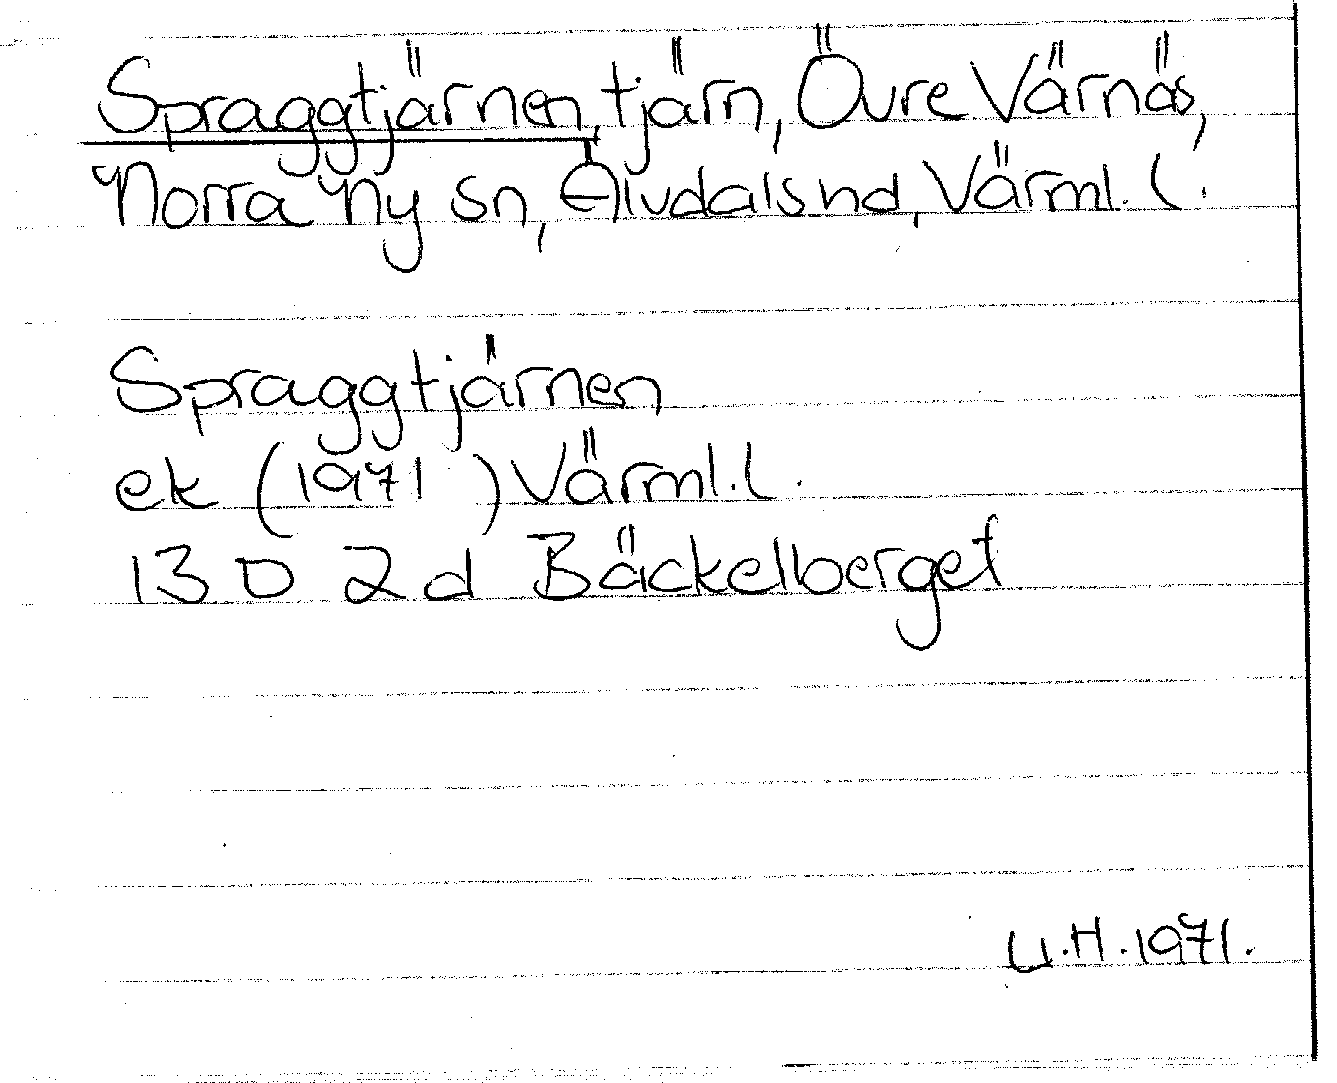 Spraggtjärnen, tjärn, Övre Värnäs,
Norra Ny sn, Älvdals hd, Värml. l.
Spraggtjärnen
ek (1971 ) Värml. l.
13 D 2 d Bäckelberget
U.H. 1971.